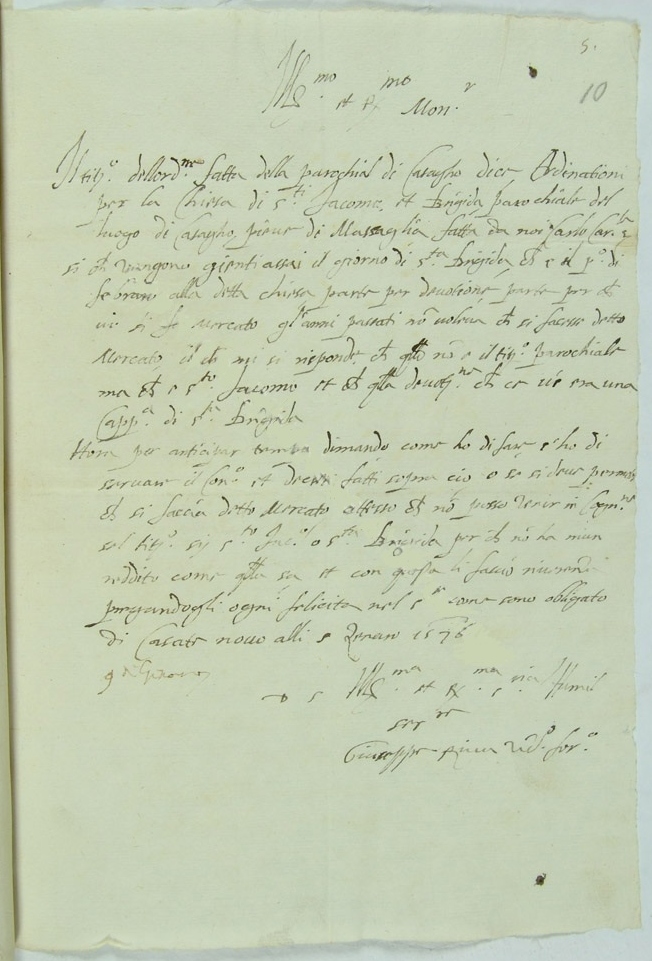 5.
10
Ill.mo et R.mo Mon.r
Il tit.o dell ord.ne fatta della parochial di Casagho dice Ordinationi
per la Chiesa di s.ti Jacomo, et Brigida parochiale del
luogo di Casagho, pieve de Massaglia fatta da noi Carlo Car.le
si ch vengono gienti assai il giorno di s.ta Brigida, ch e il p.o di
febraro alla detta chiesa parte per devotione parte per ch
ivi si fa mercato gl'anni passati nō voleva ch si facesse detto
Mercato, il ch mi si risponde, ch qsto nō e il tit.o parochiale
ma ch e s.to Jacomo et ch qlla devot.ne ch ce vie era una
Capp.a di s.ta Brigida
Hora per anticipar tempo dimando come ho di fare s'ho di
servare il Con.o et Decreti fatti sopra ciò o se si deve permett
ch si faccia detto Mercato atteso ch nō posso venir in Cogn.ne
sel tit.o sij s.to Jac.o o s.ta Brigida per ch nō ha niun
reddito come qlla sa et con qsta li faccio riverenza
pregandogli ogni felicita nel s.r come sono obligato
di Casate novo alli 5 Zenaro 1576
D S Ill.ma et R.ma s.ria Humil
ser.re
Giuseppe Riva vic.o for.o